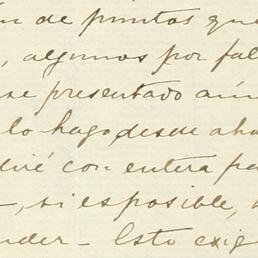 de puntos que
, algunos por fal
se presentado aún
lo hago, desde aho
diré con entera fra
, si es posible,
nder - Esto exig